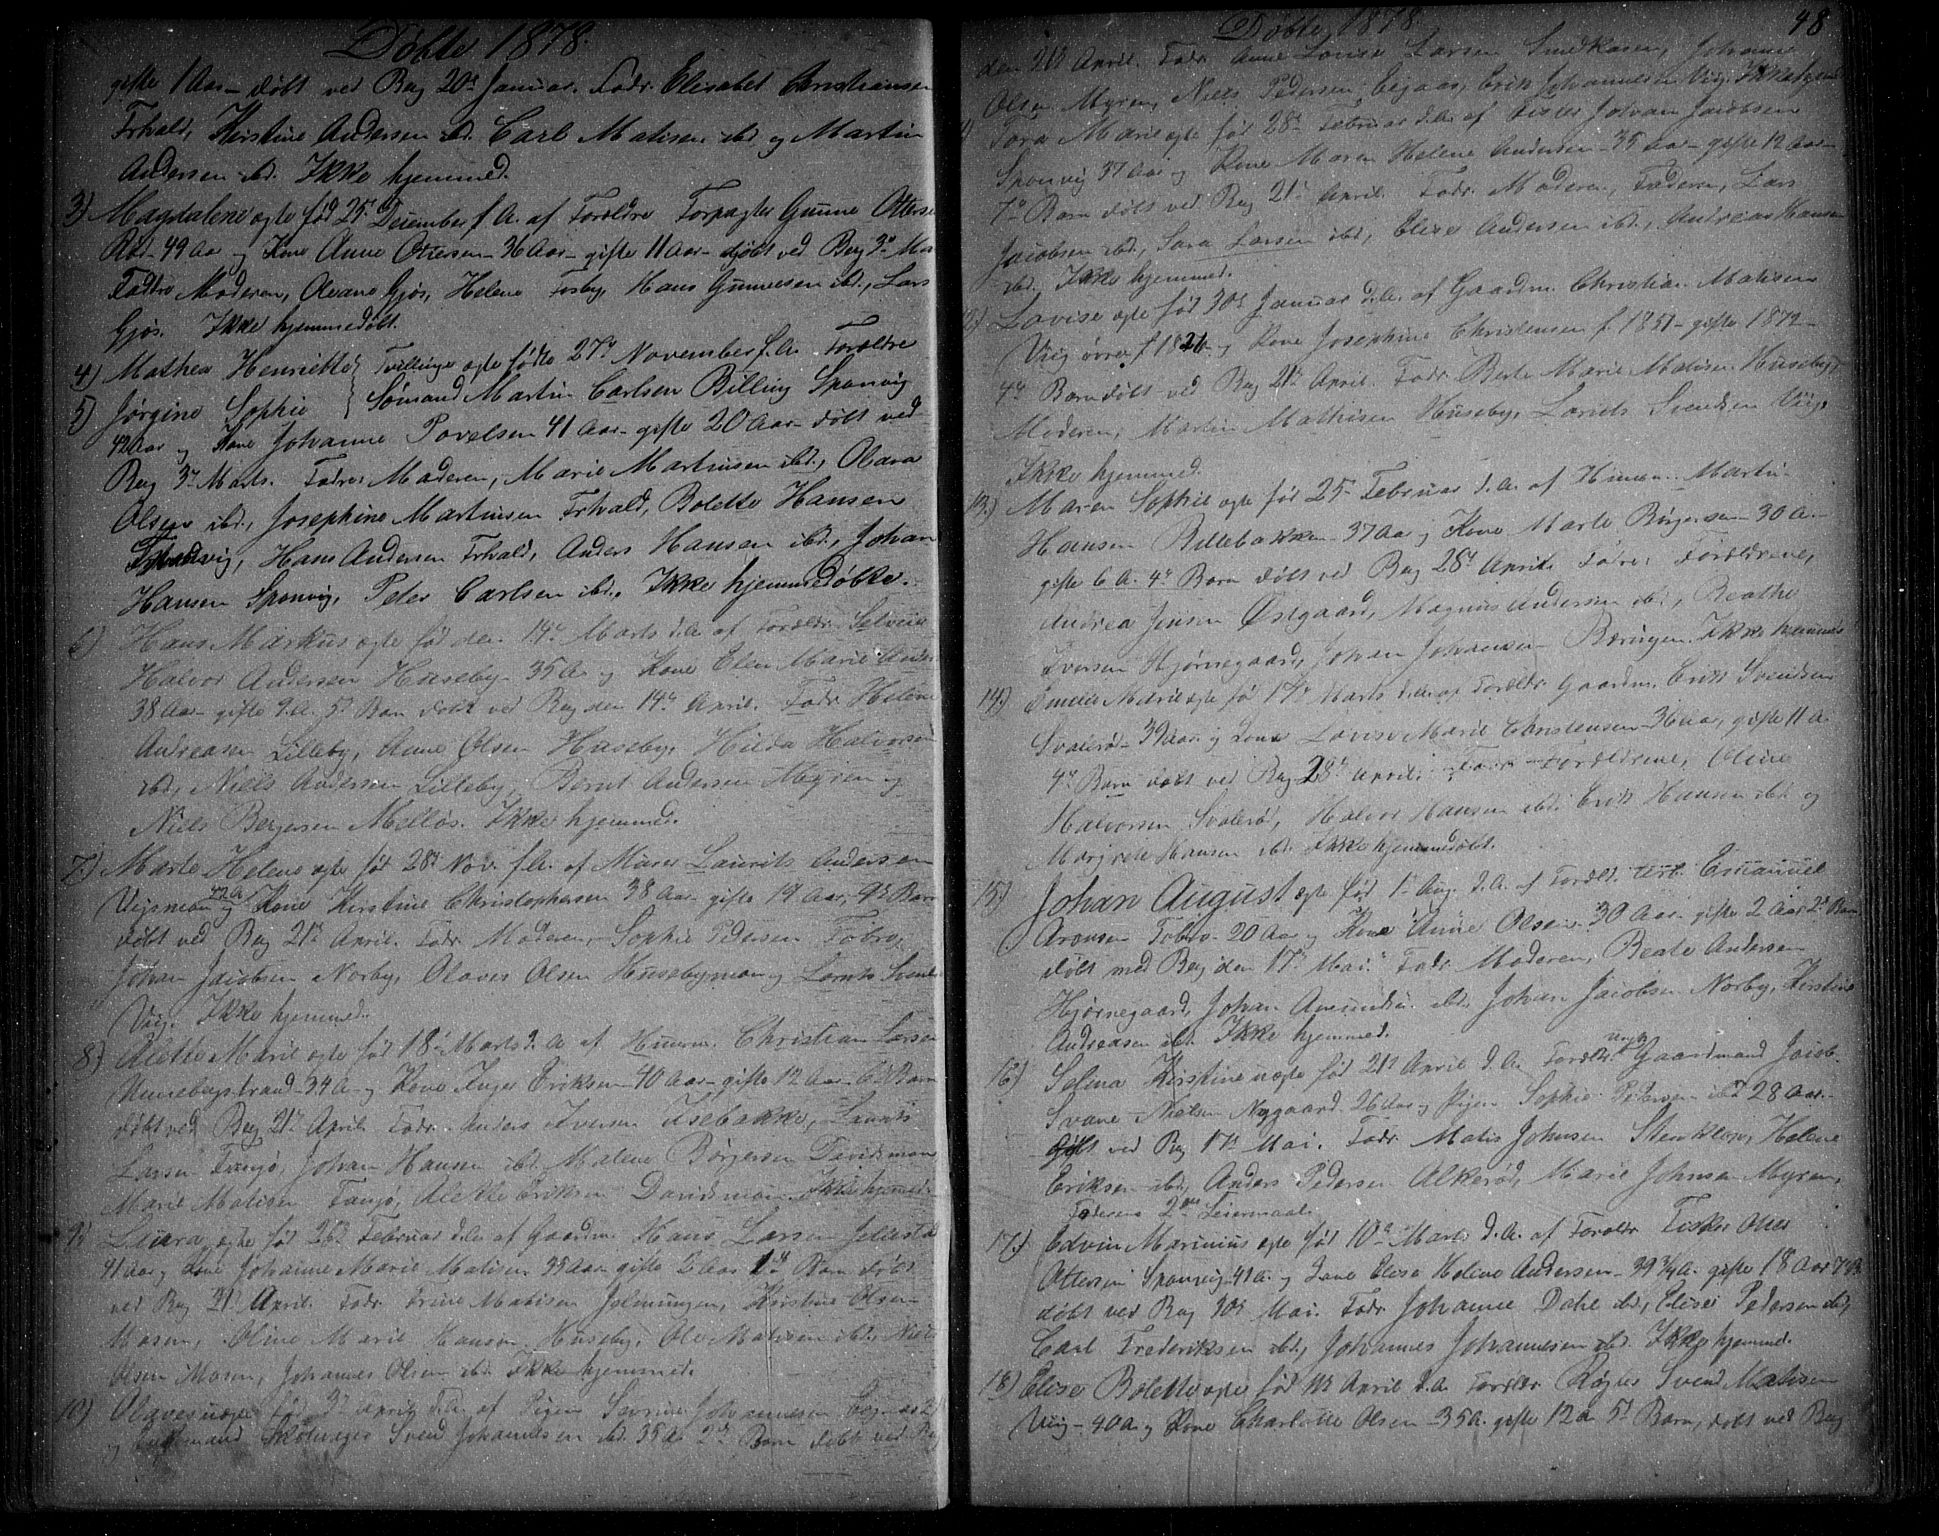 Døbte 1878.
gifte 1 Aar - døbt ved Berg 20de Januar. Fadr. Elisabet Christiansen
Trhald, Kirstine Andersen ibd. Carl Matisen ibd. og Martin
Andersen ibd. Ikke hjemmed.
3) Magdalene ægte fød 25de December f. A. af Forældre Forpagter Gunne Otters
Rød - 49 Aar og Kone Anne Ottersen - 36 Aar - gifte 11 Aar - døbt ved Berg 3de Ma
Faddre Moderen, Olvane Gjøs, Helene Torsby, Hans Gunnesen ibd., Lars
Gjøs. Ikke hjemmedøbt.
4) Mathea Henriette } Tvillinge ægte fødte 27de November f. A. Forældre
5) Jørgine Sophie } Sømand Martin Carlsen Billing Sponvig
42 Aar og Kone Johanne Povelsen 41 Aar - gifte 20 Aar - døbt ved
Berg 3de Marts. Fadr. Moderen, Marie Martinsen ibd., Olava
Olsen ibd., Josephine Martinsen Trhald, Bolette Hansen
Sponvig, Hans Andersen Trhald, Anders Hansen ibd., Johan
Hansen Sponvig, Peter Carlsen ibd., Ikke hjemmedøbte.
6) Hans Markus ægte fød den 14de Marts d. A. af Forældr. Selveier
Halvor Andersen Huseby - 35 A. og Kone Elen Marie Anders
38 Aar - gifte 9 A. 5te Barn døbt ved Berg den 14de April. Fadr. Helene
Andreasen Lilleby, Anne Olsen Huseby, Hilda Halvorsen
ibd., Niels Andersen Lilleby, Bernt Andersen Myren og
Niels Bergersen Melløs. Ikke hjemmed.
7) Marte Helene ægte fød 28de Nov. f. A. af Murer Laurits Andersen
Vejsmoen 42 A. og Kone Kirstine Christophersen 38 Aar gifte 19 Aar, 9de Barn
døbt ved Berg 21de April. Fadr. Moderen, Sophie Pedersen Tobro,
Johan Jacobsen Norby, Olaves Olsen Husebymoen og Lorents Svends
Viig. Ikke hjemmed.
8) Alette Marie ægte fød 18de Marts d. A. af Huusm. Christian Larsen
Husebystrand - 34 A. og Kone Inger Eriksen - 40 Aar - gifte 12 Aar - 6te Barn
døbt ved Berg 21de April. Fadr. Anders Iversen Isebakke, Laurits
Larsen Tangø, Johan Hansen ibd. Malene Børgersen Davidsmoen
Marie Matisen Tangø, Alette Eriksen Davidsmoen. Ikke hjemmed.
9) Laura ægte fød 26de Februar d. A. af Gaardm. Hans Larsen
41 Aar og Kone Johanne Marie Matisen 35 Aar gifte 2 Aar 1ste Barn døbt
ved Berg 21de April. Fadr. Trine Matisen Jelmungen, Kirstine Olsen
Mosen, Oline Marie Hansen Huseby, Ole Matisen ibd. Niels
Olsen Mosen, Johannes Olsen ibd. Ikke hjemmed.
10) Olaves uægte fød 3de April d. A. af Pigen Severine Johannesen
og Svend Johannesen ibd. 35 A. 2det Barn døbt ved Berg
Døbte 1878.
48
den 21de April. Fadr. Anne Lovise Larsen Smedkasen, Johanne
Olsen Myren, Niels Pedersen, Erik Johannesen Viig. Ikke hjemmed
11) Tora Marie ægte fød 28de Februar d. A. af Fisker Johan Jacobsen
Sponvig 37 Aar og Kone Maren Helene Andersen - 35 Aar - gifte 12 Aar -
7de Barn døbt ved Berg 21de April. Fadr. Moderen, Faderen, Lars
Jacobsen ibd., Sara Larsen ibd., Elise Andersen ibd., Andreas Hansen
ibd. Ikke hjemmed.
12) Lovise ægte fød 30te Januar d. A. af Gaardm. Christian Matisen
Viig øvre f. 1821 og Kone Josephine Christensen f. 1851 - gifte 1872 -
4de Barn døbt ved Berg 21de April. Fadr. Berte Marie Matisen Huseby,
Moderen, Martin Mathisen Huseby, Lorents Svendsen Viig.
Ikke hjemmed.
13) Maren Sophie ægte fød 25de Februar d. A. af Husm. Martin
Hansen Billebakken - 37 Aar og Kone Marte Børgersen - 30 A. -
gifte 6 A. 4de Barn døbt ved Berg 28de April. Fadr. Forældrene,
Andrea Jensen Østgaard, Magnus Andersen ibd., Beathe
Iversen Hjørnegaard, Johan Johansen Bæringen. Ikke hjemmed
14) Emelie Marie ægte fød 17de Marts d. A. af Forældr. Gaardm. Erik Svendsen
Svalerød - 39 Aar og Kone Lovise Marie Christensen - 36 Aar, gifte 11 A.
4de Barn døbt ved Berg 28de April. Fadr. Forældrene, Oline
Halvorsen Svalerød, Halvor Hansen ibd. Erik Hansen ibd. og
Margrete Hansen ibd. Ikke hjemmedøbt.
15) Johan August ægte fød 1ste Aug. d. A. af Forældr. Emanuel
Aronsen Tobro - 20 Aar og Kone Anne Olsen - 30 Aar - gifte 2 Aar 2det Barn
døbt med Berg den 17de Mai. Fadr. Moderen, Beate Andersen
Hjørnegaard, Johan Amundsen ibd. Johan Jacobsen Norby, Kirstine
Andreasen ibd. Ikke hjemmed.
16) Selma Kirstine uægte fød 21de April d. A. Forældr. Gaardmand Jacob
Svane Nielsen Nygaard - 26 Aar og Pigen Sophie Pedersen ibd. 28 Aar -
døbt ved Berg 17de Mai. Fadr. Matis Johnsen Stenklev, Helene
Eriksen ibd., Anders Pedersen Alkerød, Marie Johnsen Myren,
Faderens 2det Leiermaal
17) Edvin Marinius ægte fød 10de Marts d. A. af Forældr. Fisker Ole
Ottersen Sponvig - 41 A. og Kone Elisa Helene Andersen - 39 3/4 A. gifte 18 Aar 7de B.
døbt ved Berg 30te Mai. Fadr. Johanne Dahl ibd., Elise Pedersen ibd,
Carl Frederiksen ibd., Johannes Johannesen ibd. Ikke hjemmed.
18) Elise Bolette ægte fød April d. A. Forældr. Røgter Svend Matisen
Viig - 40 A og Kone Charlotte Olsen - 35 A. gifte 12 A. 5te Barn, døbt ved Berg